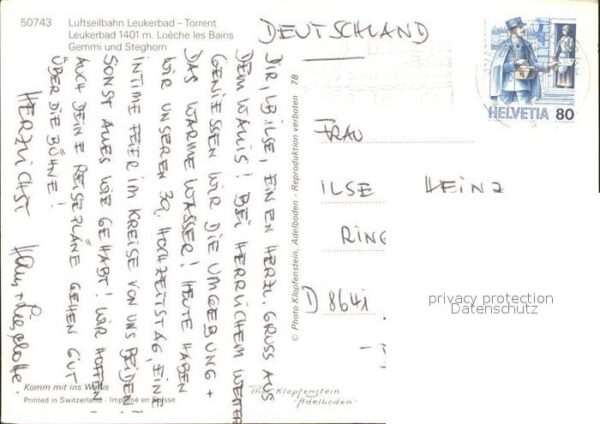 50743
Luftseilbahn Leukerbad – Torrent
Leukerbad 1401 m. Loèche les Bains
Gemmi und Steghorn
DEUTSCHLAND
HELVETIA 80
DIR, LB ILSE, EINEN HERZL. GRUSS AUS
DEM WALLIS! BEI HERRLICHEM WETTER
GENIESSEN WIR DIE UMGEBUNG +
DAS WARME WASSER! HEUTE HABEN
WIR UNSEREN 30. HOCHZEITSTAG, EINE
INTIME FEIER IM KREISE VON UNS BEIDEN!
SONST ALLES WIE GEHABT! WIR HOFFEN
AUCH DEINE REISEPLÄNE GEHEN GUT
ÜBER DIE BÜHNE!
HERZLICHST
Hans + Lieselotte.
© Photo Klopfenstein, Adelboden - Reproduktion verboten 78
FRAU
ILSE HEINZ
RING
D 8641
privacy protection
Datenschutz
Komm mit ins Wallis
Printed in Switzerland - Imprimé en Suisse
Klopfenstein
Adelboden